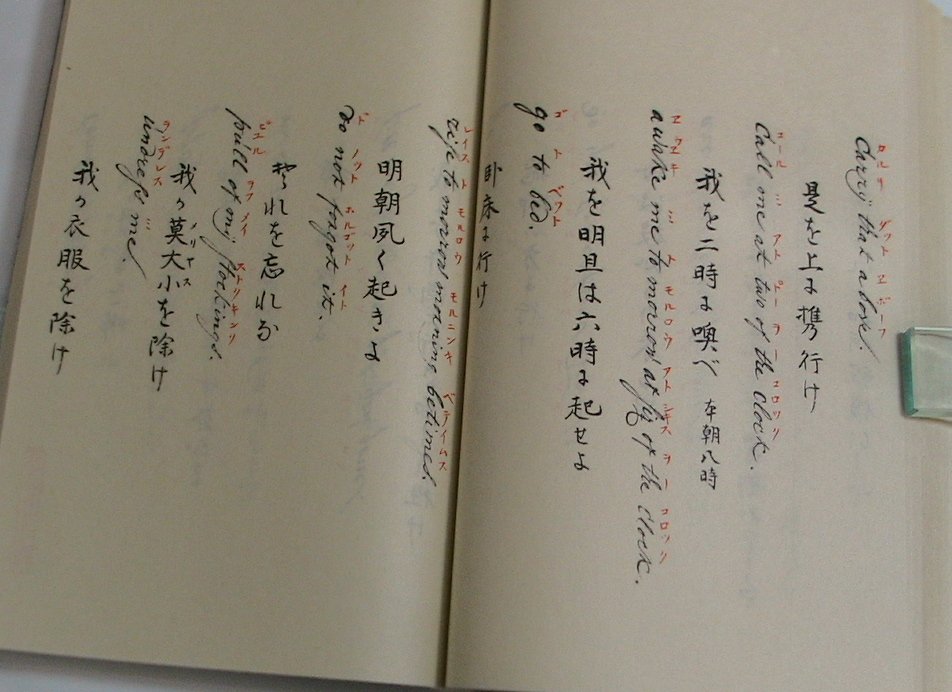 カルリ ダット エボーフ
Carry that above.
是を上に携行け
コール ミ アト ツー ヲフ コロック
Call me at two of the clock.
我を二時に喚べ 本朝八時
エウエーキ ミ ト モルロウ アト シキス ヲフ コロック
awake me to morrow at six of the clock.
我を明旦は六時に起せよ
ゴ ト ベット
go to bed.
臥床に行け
レイス ト モルロウ モルニンキ ベテイムス
rise to morrow morning betimes.
明朝夙く起きよ
ド ノット ホルゴット イト
do not forgot it.
れを忘れな
ピュル ヲフ メイ ストツキンリ
pull of my stockings.
我か莫大小を除け
メリヤス
ヲンデレス ミ
undress me.
我か衣服を除け